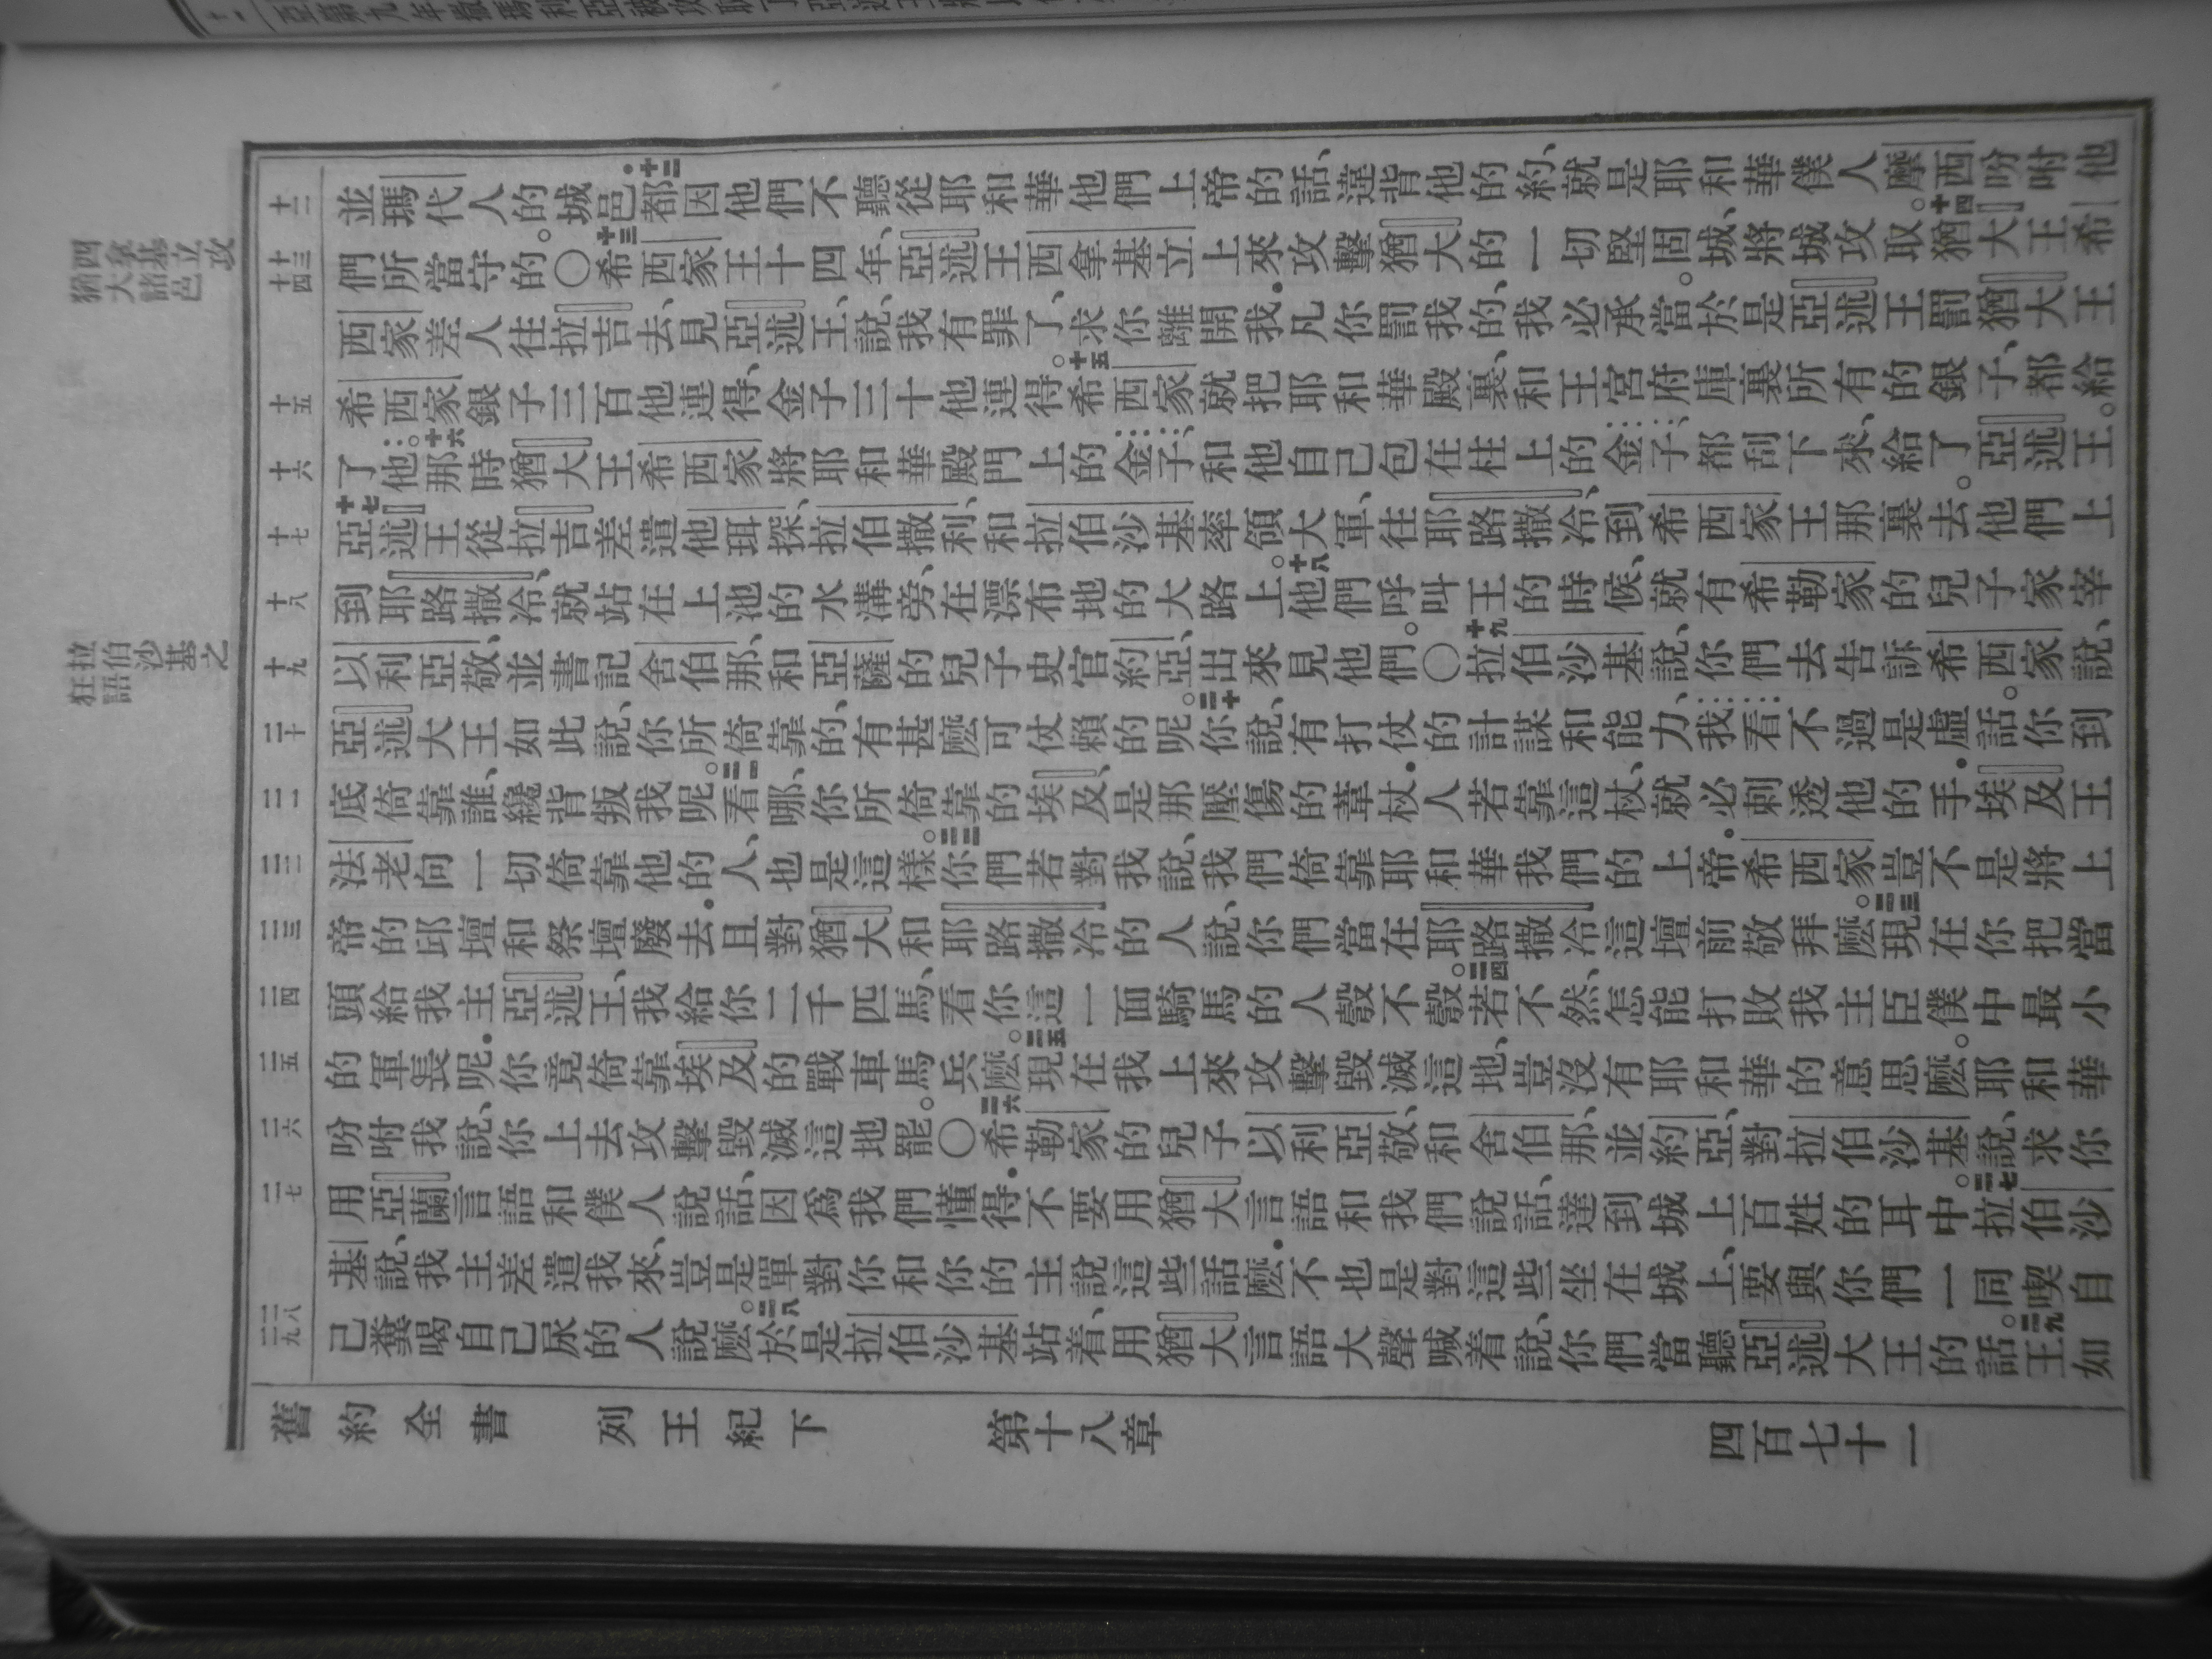 西拿基立攻
猶大諸邑
拉伯沙基之
狂語
十二
並瑪代人的城邑．十二都因他們不聽從耶和華他們上帝的話、違背他的約、就是耶和華僕人摩西吩咐他
十三 十四
們所當守的。〇十三希西家王十四年、亞述王西拿基立上來攻擊猶大的一切堅固城、將城攻取。十四猶大王希
西家差人往拉吉去、見亞述王、說、我有罪了、求你離開我．凡你罰我的、我必承當。於是亞述王罰猶大王
十五
希西家銀子三百他連得、金子三十他連得。十五希西家就把耶和華殿裏和王宮府庫裏所有的銀子、都給
十六
了他。十六那時猶大王希西家將耶和華殿門上的金子、和他自己包在柱上的金子、都刮下來、給了亞述王。
十七
十七亞述王從拉吉差遣他珥探、拉伯撒利、和拉伯沙基率領大軍、往耶路撒冷、到希西家王那裏去。他們上
十八
到耶路撒冷、就站在上池的水溝旁、在漂布地的大路上。十八他們呼叫王的時候、就有希勒家的兒子家宰
十九
以利亞敬、並書記舍伯那、和亞薩的兒子史官約亞、出來見他們。〇十九拉伯沙基說、你們去告訴希西家說、
二十
亞述大王如此說、你所倚靠的、有甚麼可仗賴的呢。二十你說、有打仗的計謀和能力、我看不過是虛話。你到
二一
底倚靠誰、纔背叛我呢。二一看哪、你所倚靠的埃及、是那壓傷的葦杖．人若靠這杖、就必刺透他的手．埃及王
二二
法老向一切倚靠他的人、也是這樣。二二你們若對我說、我們倚靠耶和華我們的上帝．希西家豈不是將上
二三
帝的邱壇和祭壇廢去．且對猶大和耶路撒冷的人說、你們當在耶路撒冷這壇前敬拜麼。二三現在你把當
二四
頭給我主亞述王、我給你二千匹馬、看你這一面騎馬的人彀不彀。二四若不然、怎能打敗我主臣僕中最小
二五
的軍長呢．你竟倚靠埃及的戰車馬兵麼。二五現在我上來攻擊毀滅這地、豈沒有耶和華的意思麼。耶和華
二六
吩咐我說、你上去攻擊毀滅這地罷。〇二六希勒家的兒子以利亞敬、和舍伯那、並約亞、對拉伯沙基說、求你
二七
用亞蘭言語和僕人說話、因為我們懂得．不要用猶大言語和我們說話、達到城上百姓的耳中。二七拉伯沙
基說、我主差遣我來、豈是單對你和你的主說這些話麼．不也是對這些坐在城上、要與你們一同喫自
二八 二九
己糞喝自己尿的人說麼。二八於是拉伯沙基站着、用猶大言語大聲喊着說、你們當聽亞述大王的話。二九王如
舊約全書 列王紀下 第十八章 四百七十一